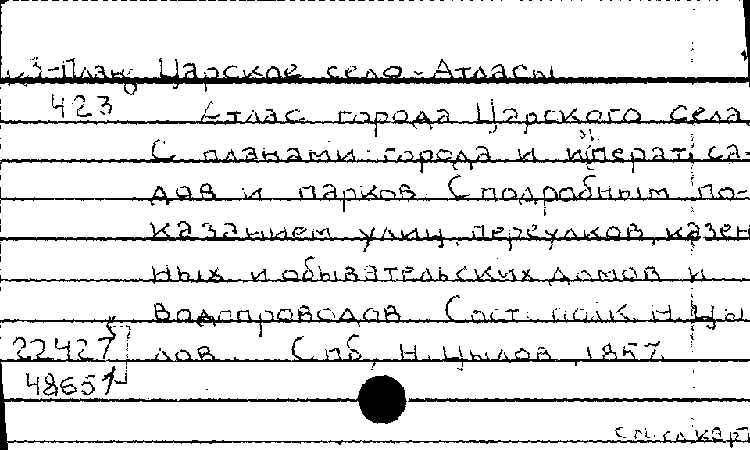 Из-План Царское село - Атласы
423 Атлас города Царского Села
С планами: города и императ. са-
дов и парков. С подробным по-
казанием улиц, переулков, казен
ных и обывательских домов и
водопроводов. Сост. полк. Н. Цы
22427 лов. Спб, Н. Цылов, 1857.
48651
см. сл карт